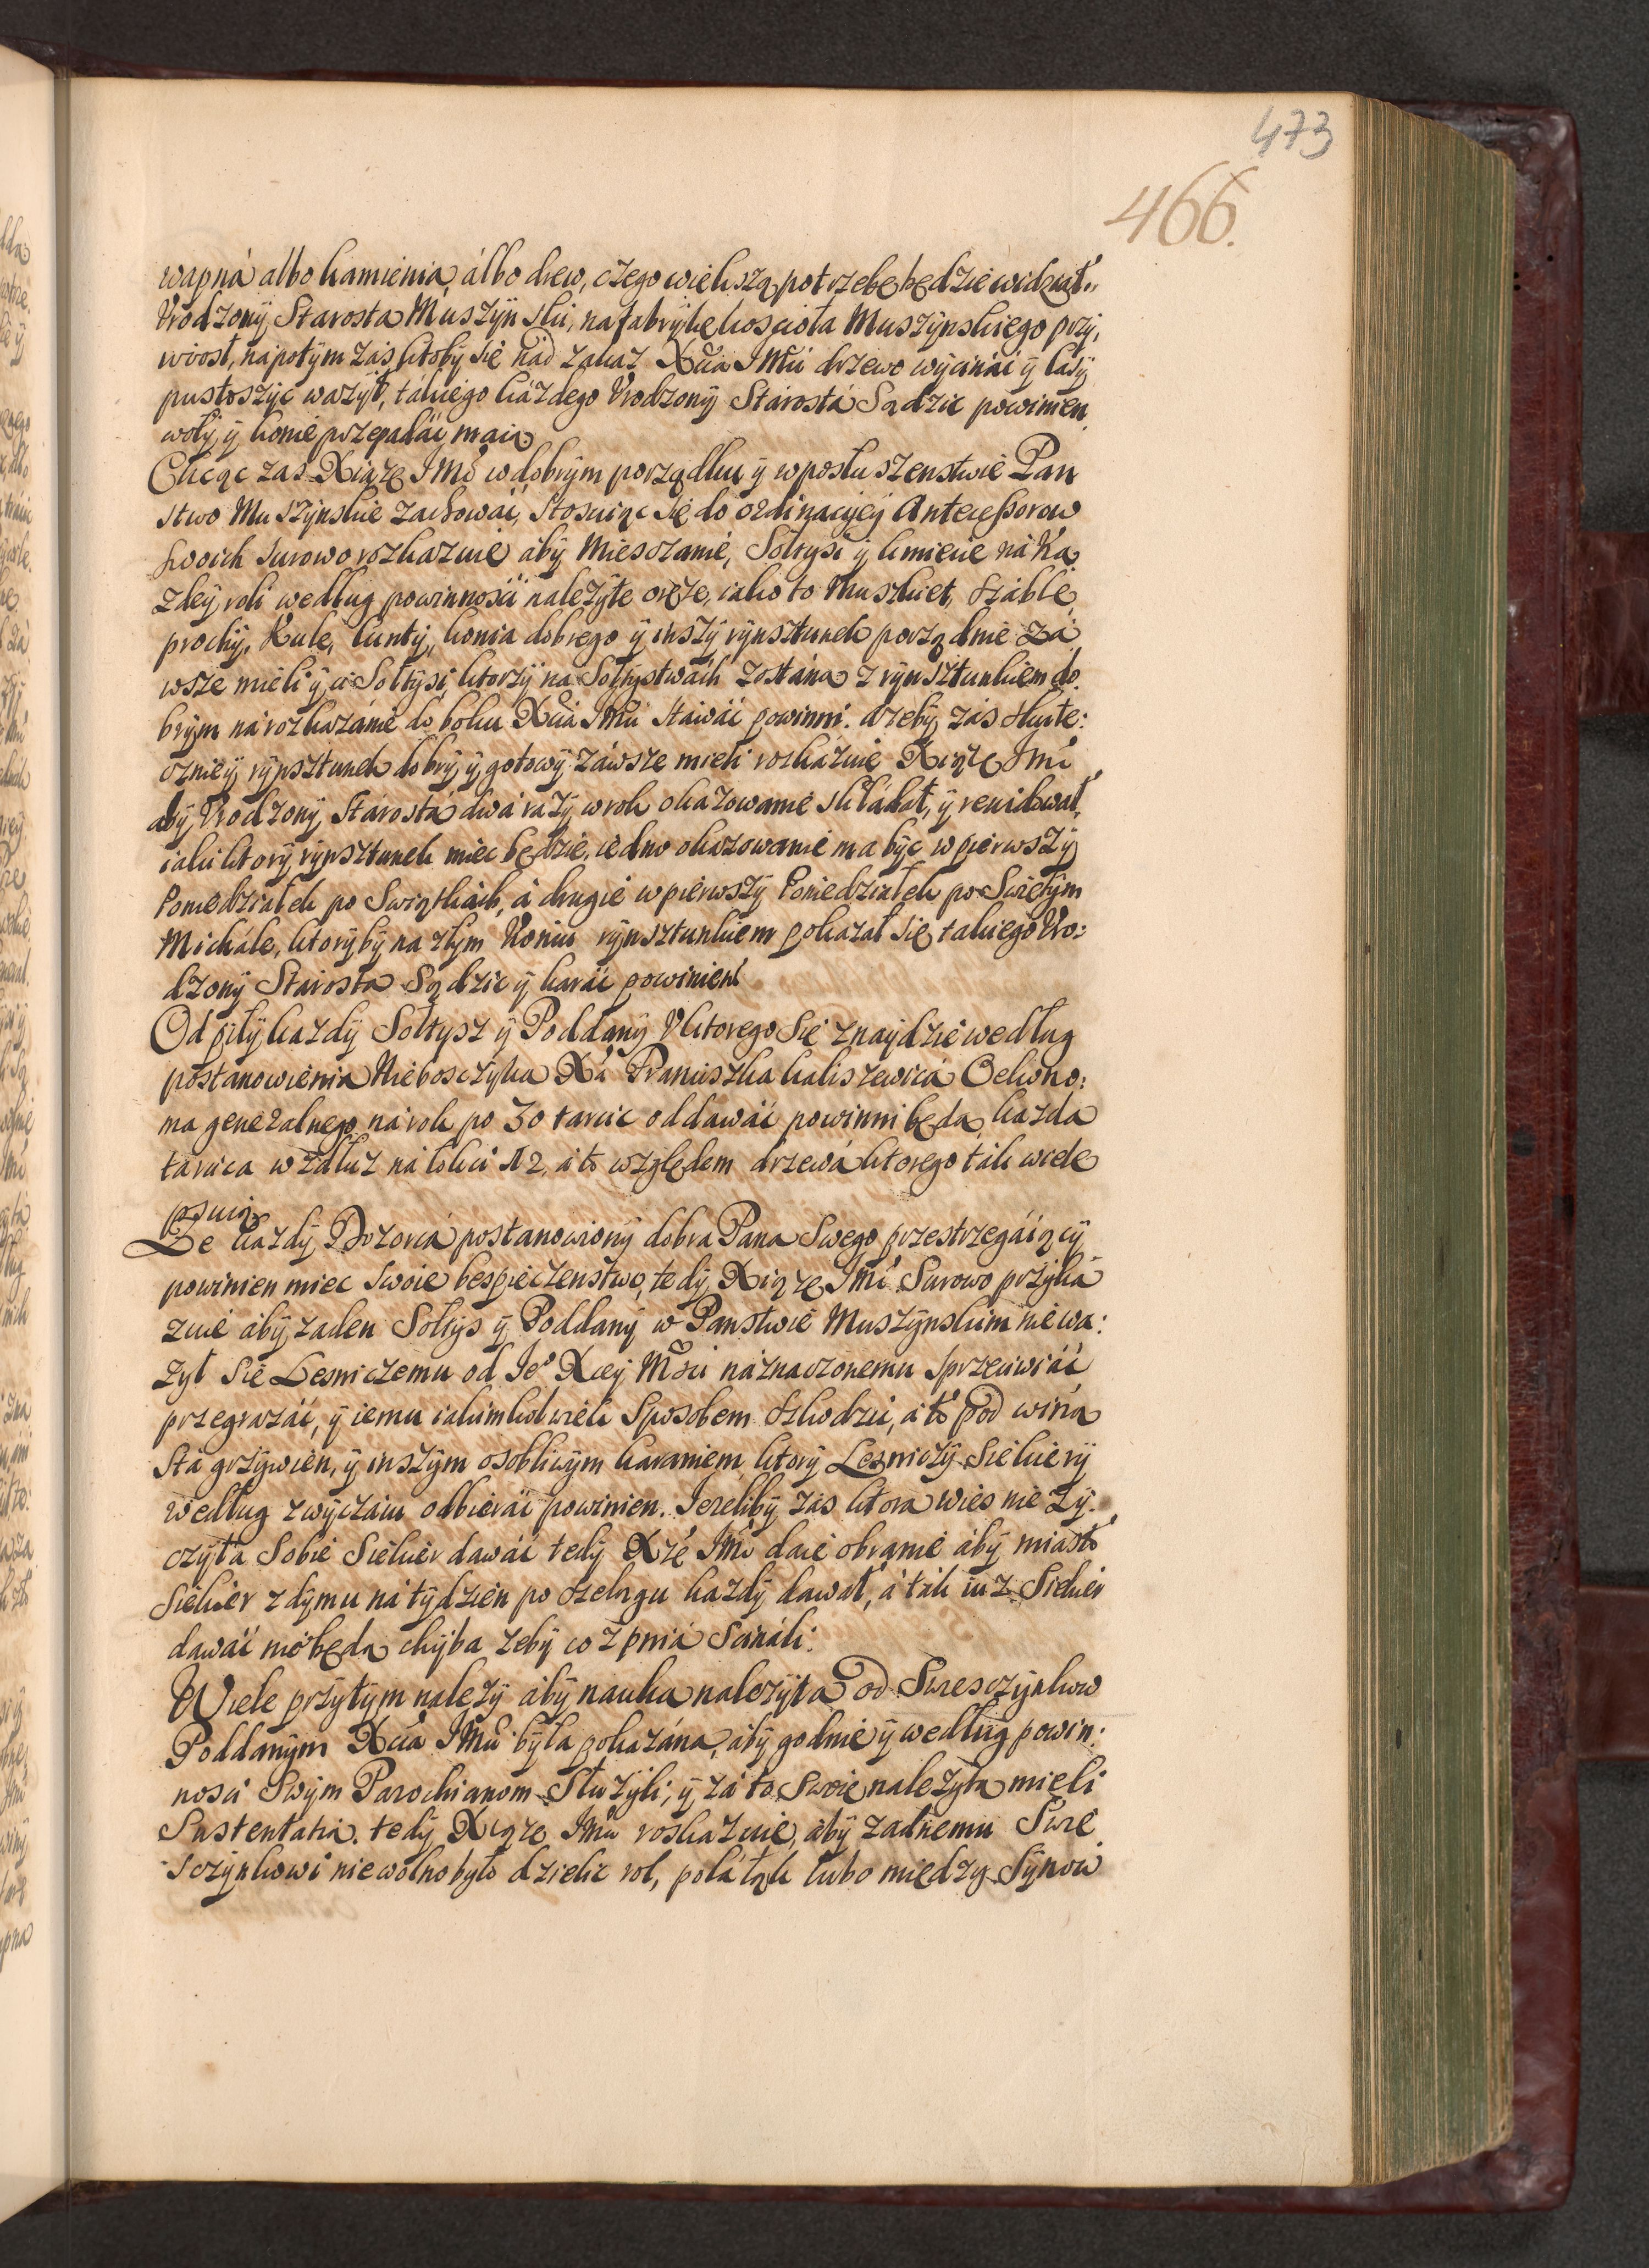 473
466.
wapná albo kamienia, álbo drew, czego większą potrzebę będzie widział,
Vrodzony Starosta Muszynski, na fabrykę koscioła Muszynskiego przy,
wiosł, napotym zás ktoby się nád zakaz Xcia JMci drzewo wycináć ÿ lasy
pustoszyć wazył, takiego każdego Vrodzony Stárostá Sądzic powinien,
woły ÿ konie przepadáć maią
Chcąc zas Xiąze JMć w dobrym porządku ÿ w posłuszenstwie Pan
stwo Muszynskie zachowáć, stosuiąc się do ordinacyiey Antecessorow
swoich surowo rozkazuie áby Miesczanie, Sołtysi ÿ kmiecie ná Ka
zdey roli według powinnosci nalezyte oręże, iako to Muszkiet, száble
prochy, Kule, lunty, konia dobrego ÿ inszy rynsztunek porządnie zá
wsze mieli ÿ ci Sołtysi, ktorzy na Sołtystwách zostána z rynsztunkiem do
brym ná rozkazánie do boku Xcia JMci stawáć powinni. Azeby zás skute:
czniey rynsztunek dobry ÿ gotowy záwsze mieli roskázuie Xiąze JMć
aby Vrodzony Stárostá dwá razy w rok okazowanie składał, ÿ rewidował,
iaki ktory rynsztunek miec będzie, iedno okazowanie ma byc w pierwszy
Poniedziałek po Swiątkách, á drugie w pierwszy Poniedziałek po Swiętym
Michále, ktoryby na złym Koniu rynsztunkiem pokazał się takiego Vro:
dzony Starosta Sądzic ÿ karáć powinien
Od piły kazdy Sołtysz ÿ Poddany V ktorego się znaydzie według
postanowienia Nieboszczyka Xa Franciszka kaliszewicá Oekono:
ma generalnego ná rok po 30 tarcic oddawáć powinni będą, kazda
tarcica w zdłuz ná łokci N 2, á to względem drzewá ktorego ták wiele
psuią
Ze kazdy Dozorcá postanowiony dobra Pana Swego przestrzegáiący
powinien miec swoie bespieczenstwo, tedy Xiąze JMć Surowo przyká
zuie áby zaden Sołtys ÿ Poddany w Panstwie Muszynskim nie wa:
zył się Lesniczemu od Jeo Xcey Mści náznaczonemu sprzeciwiáć
przegrazáć, ÿ iemu iakimkolwiek Sposobem szkodzić, á to pod winá
stá grzywien, ÿ inszym osobliwym karaniem, ktory Lesniczy siekiery
według zwyczáiu odbieráć powinien. Jezeliby zás ktora wies nie zy:
czyła Sobie Siekier dawáć tedy Xże JMć daie obranie áby miasto
siekier z dymu ná tydzien po szelągu kazdy dawał, á ták iuz Siekier
dawáć nie będą chyba zeby co z pniá Scináli.
Wiele przytym nalezy áby nauka nalezyta od Swiesczynkow
Poddanym Xcia JMci była pokazána, áby godnie ÿ według powin:
nosci Swym Parochianom Słuzyli, ÿ zá to Swoie nalezyta mieli
Sustentatią. tedy Xiąze JMć roskazuie, áby zadnemu Swie
sczynkowi niewolno było dzielic rol, polá łąk lubo miedzy Synow